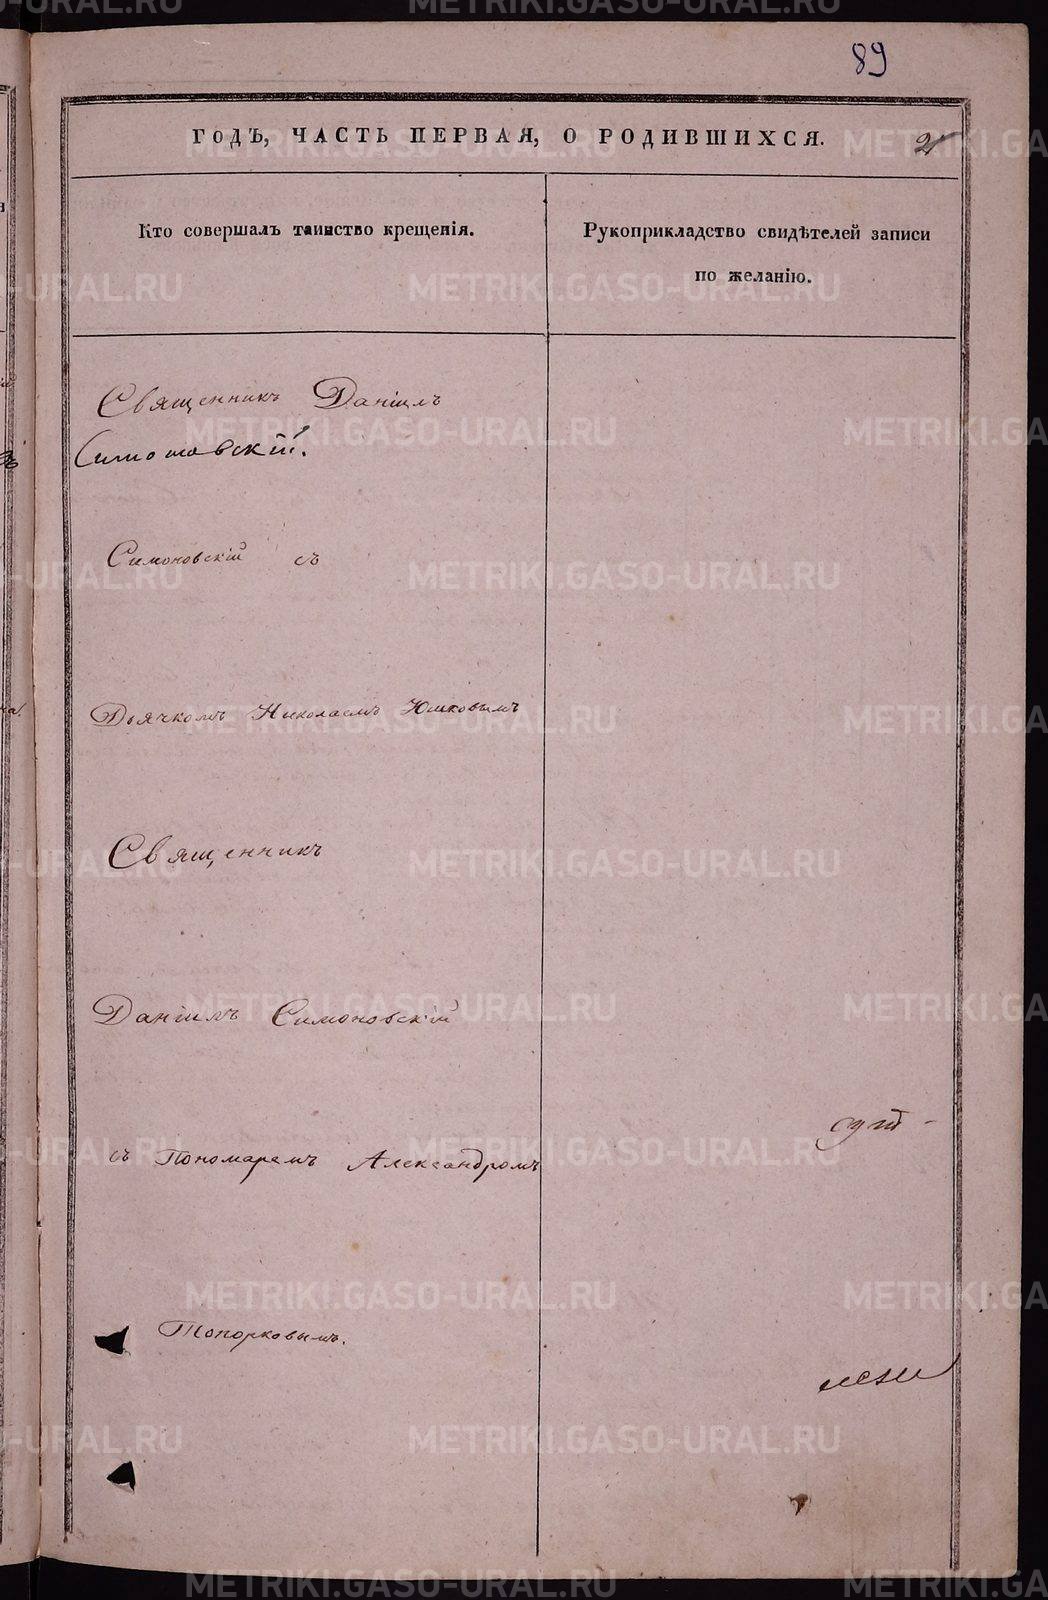 89
ГОДЪ, ЧАСТЬ ПЕРВАЯ, О РОДИВШИХСЯ.
2
Кто совершалъ таинство крещенія.
Рукоприкладство свидѣтелей записи
по желанію.
Священникъ Даніилъ
Симоновскій.
Симоновскій съ
Дьячкомъ Николаемъ Юшковымъ
Священникъ
Даніилъ Симоновскій
съ Пономаремъ Александромъ
Топорковымъ.
METRIKI.GASO-URAL.RU